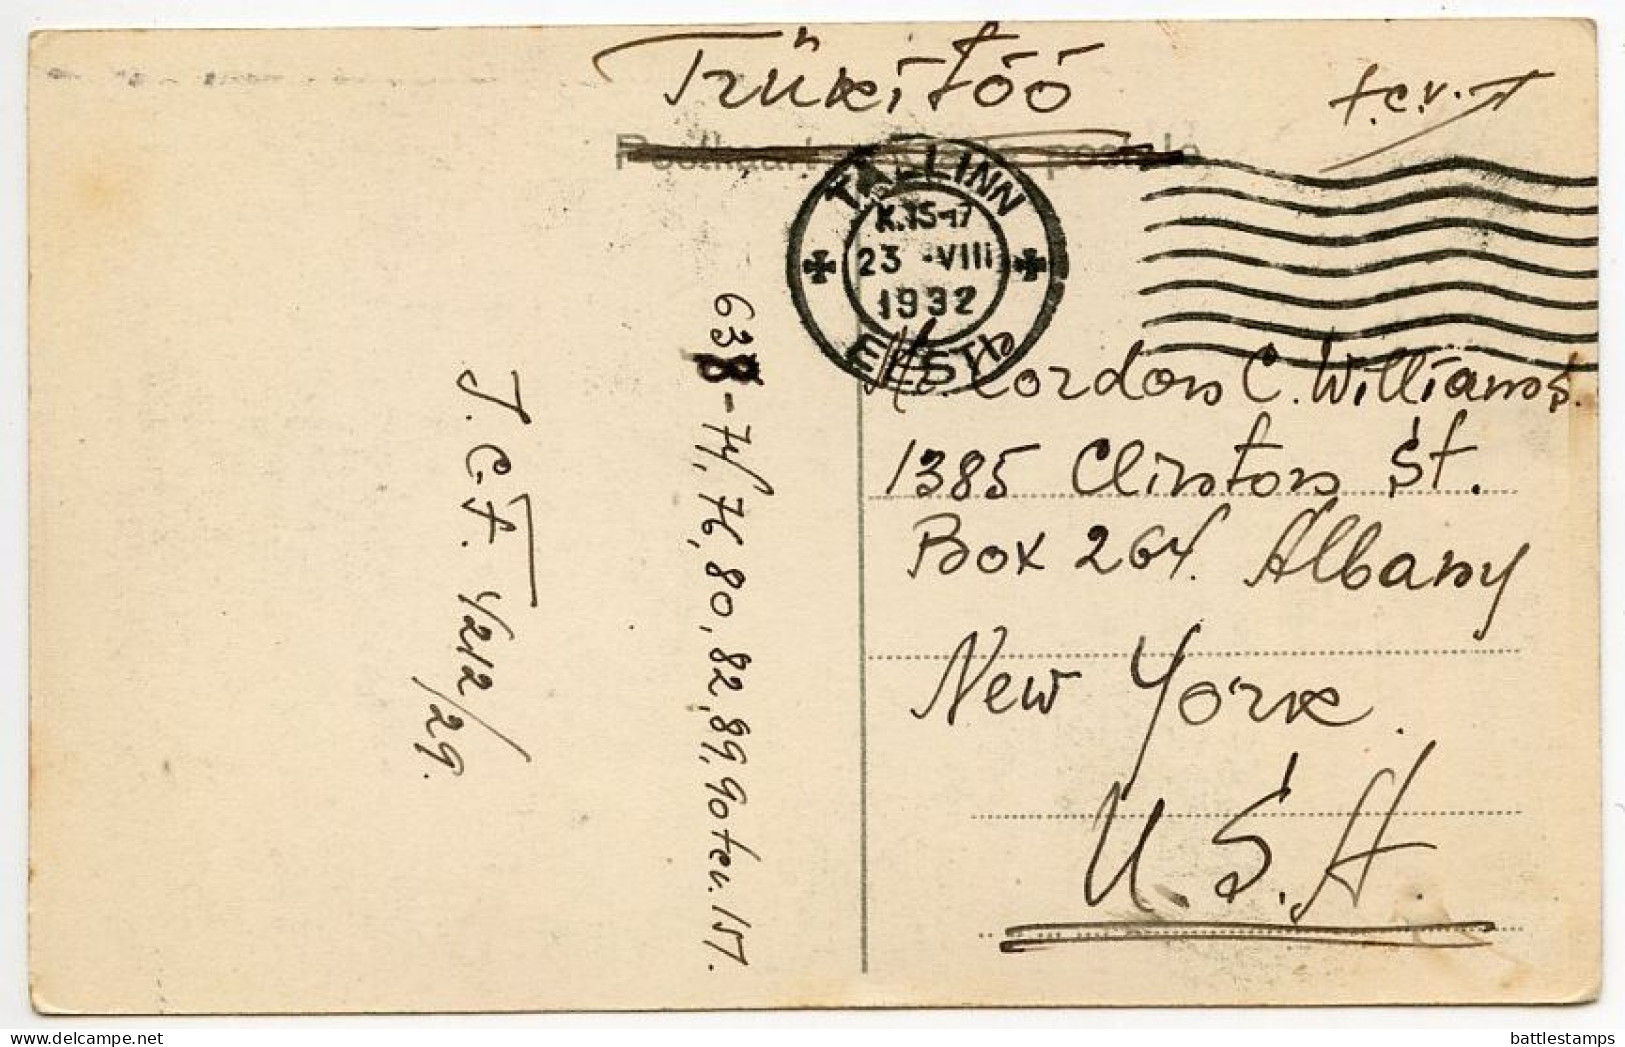 Trükitöö
t.c.v.
Postkaart Carte postale
TALLINN
K.15-17
23 -VIII
1932
EESTI
Mr. Gordon C. Williams.
1385 Clinton St.
Box 264. Albany
New York.
U.S.A.
638-74, 76, 80, 82, 89, 90
1212/29.
delcampe.net
battlestamps